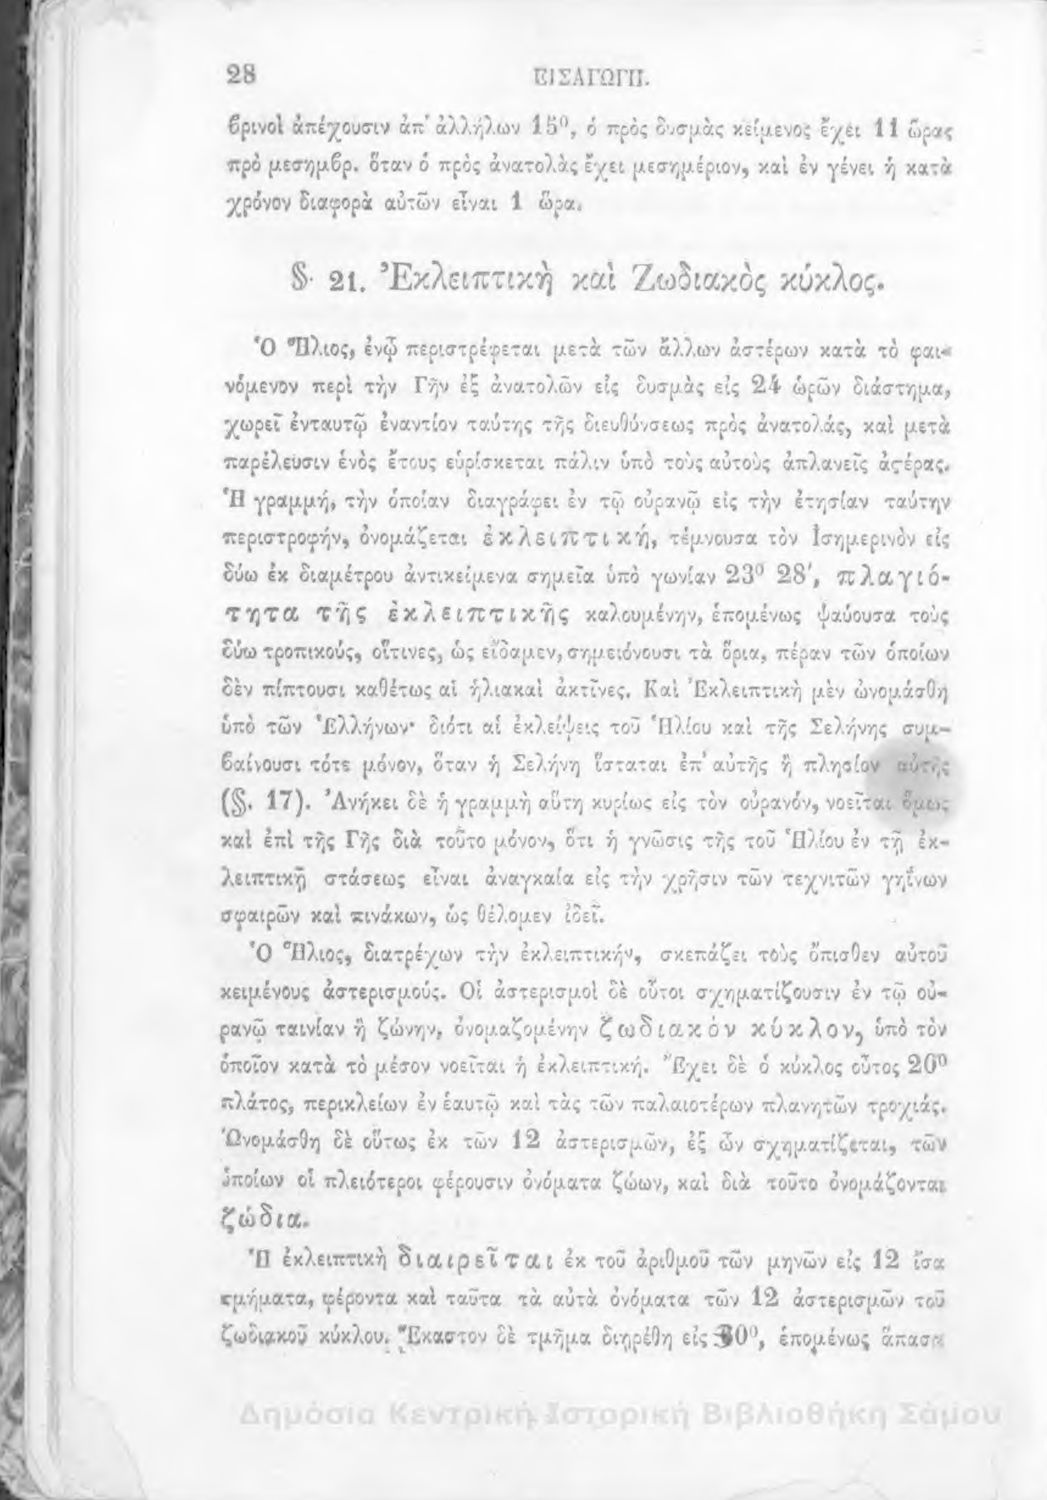 28 ΕΙΣΑΓΩΓΗ.
βρινοὶ ἀπέχουσιν ἀπ' ἀλλήλων 15⁰, ὁ πρὸς δυσμὰς κείμενος ἔχει 11 ὥρας
πρὸ μεσημβρ. ὅταν ὁ πρὸς ἀνατολὰς ἔχει μεσημέριον, καὶ ἐν γένει ἡ κατὰ
χρόνον διαφορὰ αὐτῶν εἶναι 1 ὥρα.
§· 21. Ἐκλειπτικὴ καὶ Ζωδιακὸς κύκλος.
Ὁ Ἥλιος, ἐνῷ περιστρέφεται μετὰ τῶν ἄλλων ἀστέρων κατὰ τὸ φαι-
νόμενον περὶ τὴν Γῆν ἐξ ἀνατολῶν εἰς δυσμὰς εἰς 24 ὡρῶν διάστημα,
χωρεῖ ἐνταυτῷ ἐναντίον ταύτης τῆς διευθύνσεως πρὸς ἀνατολάς, καὶ μετὰ
παρέλευσιν ἑνὸς ἔτους εὑρίσκεται πάλιν ὑπὸ τοὺς αὐτοὺς ἀπλανεῖς ἀϛέρας.
Ἡ γραμμή, τὴν ὁποίαν διαγράφει ἐν τῷ οὐρανῷ εἰς τὴν ἐτησίαν ταύτην
περιστροφήν, ὀνομάζεται ἐκλειπτική, τέμνουσα τὸν Ἰσημερινὸν εἰς
δύω ἐκ διαμέτρου ἀντικείμενα σημεῖα ὑπὸ γωνίαν 23⁰ 28', πλαγιό-
τητα τῆς ἐκλειπτικῆς καλουμένην, ἑπομένως ψαύουσα τοὺς
δύω τροπικούς, οἵτινες, ὡς εἴδαμεν, σημειόνουσι τὰ ὅρια, πέραν τῶν ὁποίων
δὲν πίπτουσι καθέτως αἱ ἡλιακαὶ ἀκτῖνες. Καὶ Ἐκλειπτικὴ μὲν ὠνομάσθη
ὑπὸ τῶν Ἑλλήνων· διότι αἱ ἐκλείψεις τοῦ Ἡλίου καὶ τῆς Σελήνης συμ-
βαίνουσι τότε μόνον, ὅταν ἡ Σελήνη ἵσταται ἐπ' αὐτῆς ἢ πλησίον αὐτῆς
(§. 17). Ἀνήκει δὲ ἡ γραμμὴ αὕτη κυρίως εἰς τὸν οὐρανόν, νοεῖται ὅμως
καὶ ἐπὶ τῆς Γῆς διὰ τοῦτο μόνον, ὅτι ἡ γνῶσις τῆς τοῦ Ἡλίου ἐν τῇ ἐκ-
λειπτικῇ στάσεως εἶναι ἀναγκαία εἰς τὴν χρῆσιν τῶν τεχνιτῶν γηΐνων
σφαιρῶν καὶ πινάκων, ὡς θέλομεν ἰδεῖ.
Ὁ Ἥλιος, διατρέχων τὴν ἐκλειπτικήν, σκεπάζει τοὺς ὄπισθεν αὐτοῦ
κειμένους ἀστερισμούς. Οἱ ἀστερισμοὶ δὲ οὗτοι σχηματίζουσιν ἐν τῷ οὐ-
ρανῷ ταινίαν ἢ ζώνην, ὀνομαζομένην ζωδιακὸν κύκλον, ὑπὸ τὸν
ὁποῖον κατὰ τὸ μέσον νοεῖται ἡ ἐκλειπτική. Ἔχει δὲ ὁ κύκλος οὗτος 20⁰
πλάτος, περικλείων ἐν ἑαυτῷ καὶ τὰς τῶν παλαιοτέρων πλανητῶν τροχιάς.
Ὠνομάσθη δὲ οὕτως ἐκ τῶν 12 ἀστερισμῶν, ἐξ ὧν σχηματίζεται, τῶν
ὁποίων οἱ πλειότεροι φέρουσιν ὀνόματα ζώων, καὶ διὰ τοῦτο ὀνομάζονται
ζώδια.
Ἡ ἐκλειπτικὴ διαιρεῖται ἐκ τοῦ ἀριθμοῦ τῶν μηνῶν εἰς 12 ἴσα
τμήματα, φέροντα καὶ ταῦτα τὰ αὐτὰ ὀνόματα τῶν 12 ἀστερισμῶν τοῦ
ζωδιακοῦ κύκλου. Ἕκαστον δὲ τμῆμα διῃρέθη εἰς 30⁰, ἑπομένως ἅπασα
Δημόσια Κεντρική Ιστορική Βιβλιοθήκη Σάμου